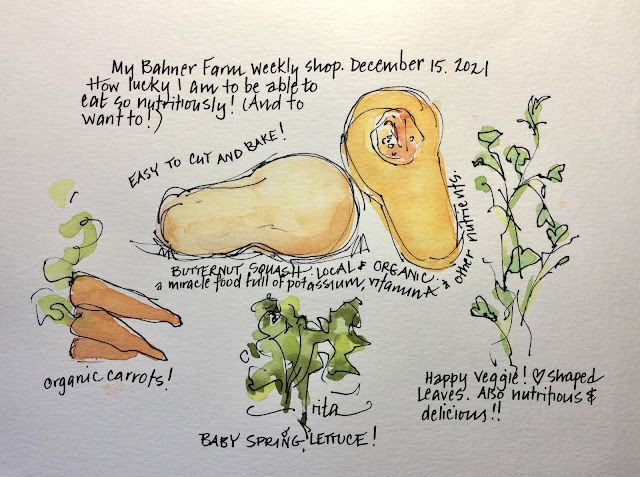 My Bahner Farm weekly shop. December 15. 2021
How lucky I am to be able to
eat so nutritiously! (And to
want to!)
EASY TO CUT AND BAKE!
BUTTERNUT SQUASH. LOCAL & ORGANIC.
a miracle food full of potassium, vitamin A & other nutrients.
organic carrots!
rita
BABY SPRING LETTUCE!
Happy Veggie! ♡ shaped
Leaves. Also nutritious &
delicious!!